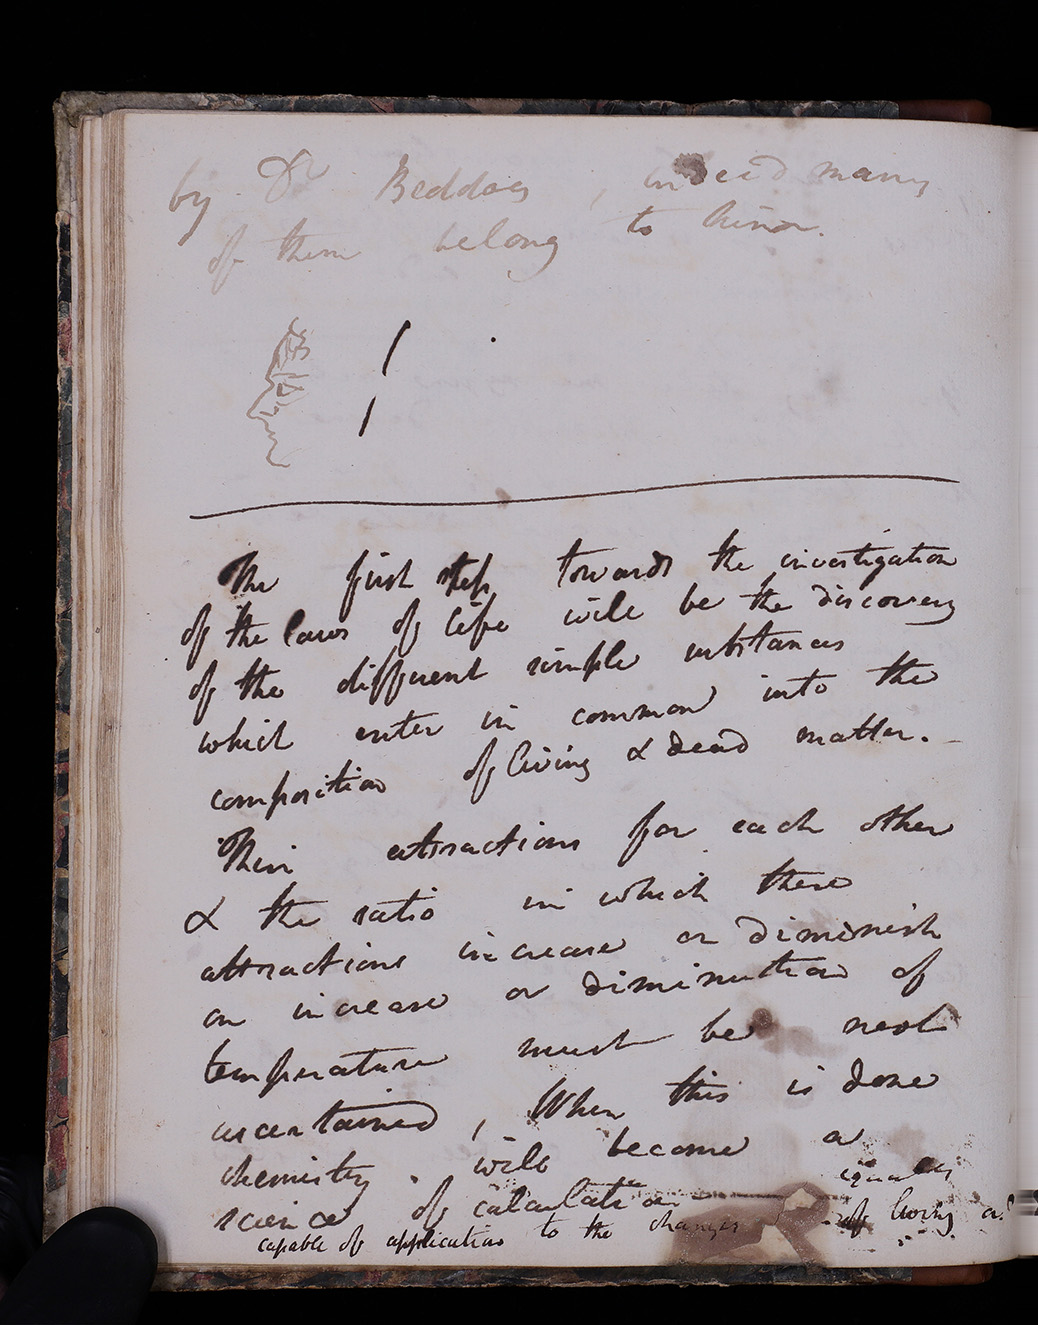 by Dr Beddoes, indeed many
of them belong to him.
The first step towards the investigation
of the laws of life will be the discovery
of the different simple substances
which enter in common into the
composition of living & dead matter. -
Their attractions for each other
& the ratio in which these
attractions increase or diminish
on increase or diminution of
temperature must be next
ascertained, When this is done
chemistry. will become a
science of calculation equally
capable of application to the changes of living